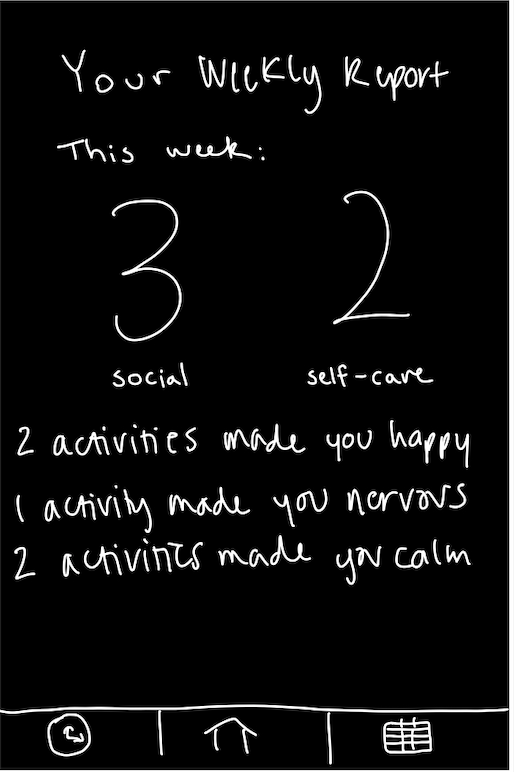 Your Weekly Report
This week:
3 2
social self-care
2 activities made you happy
1 activity made you nervous
2 activities made you calm